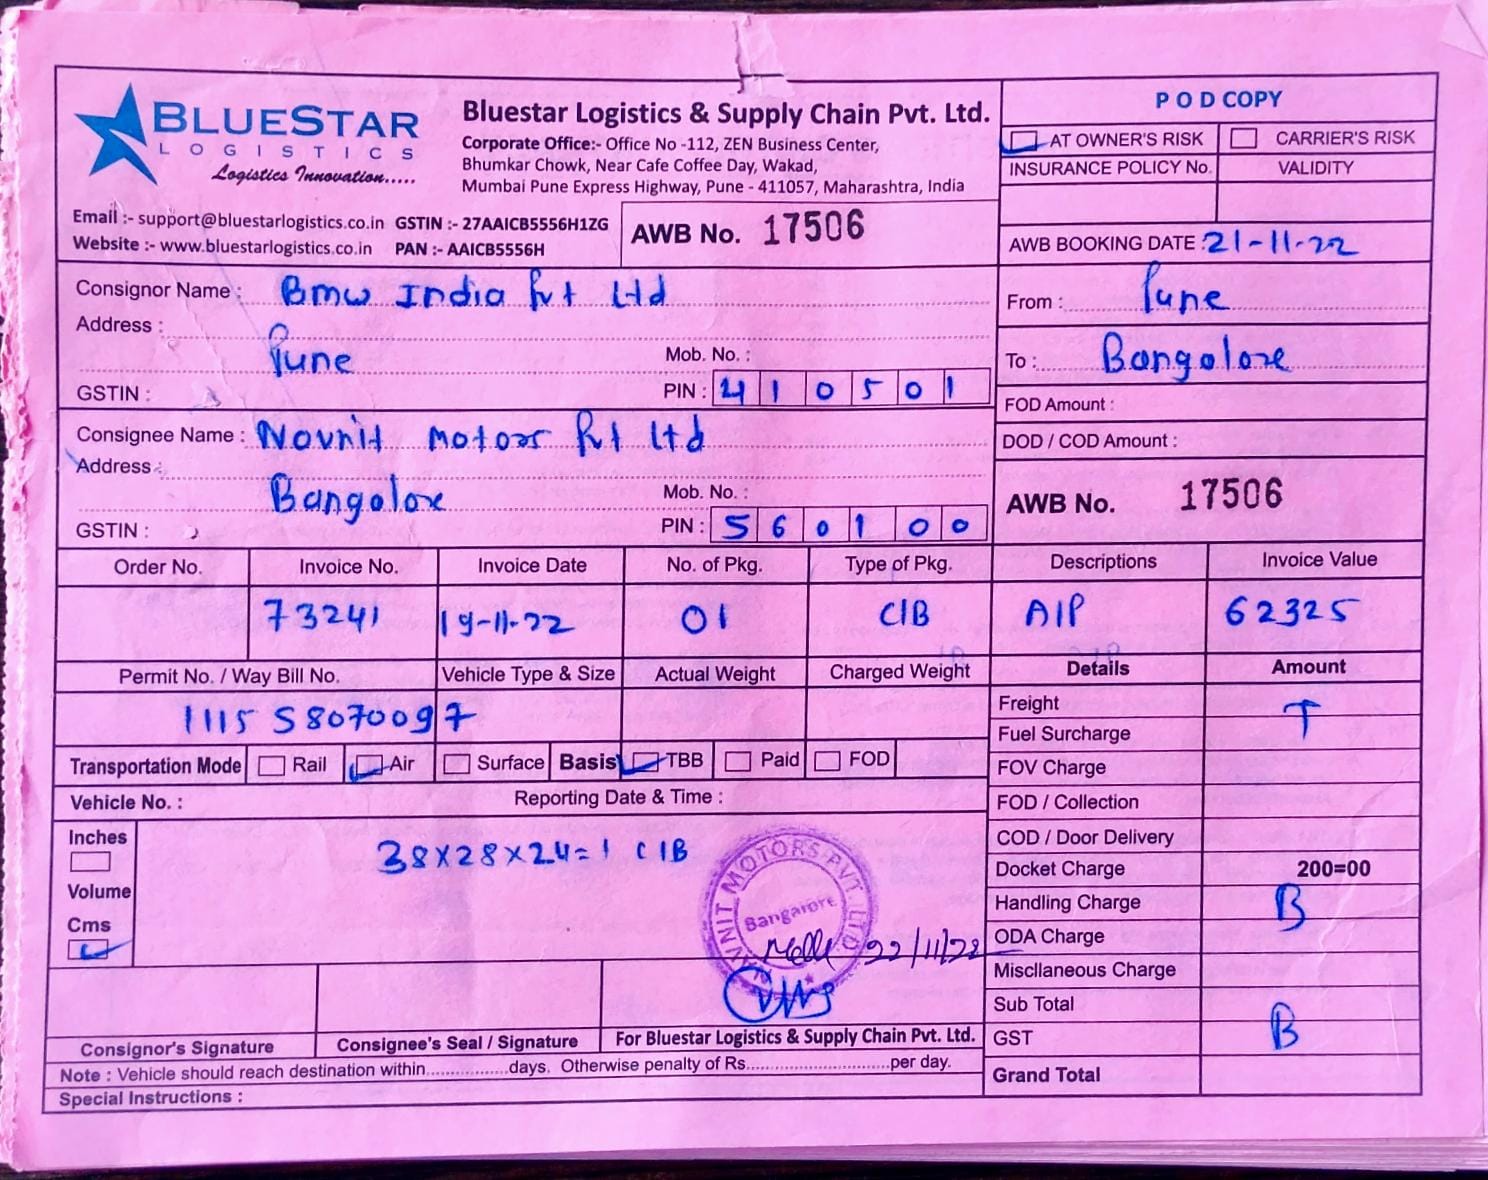 BLUESTAR
LOGISTICS
Logistics Innovation.....
Bluestar Logistics & Supply Chain Pvt. Ltd.
Corporate Office:- Office No -112, ZEN Business Center,
Bhumkar Chowk, Near Cafe Coffee Day, Wakad,
Mumbai Pune Express Highway, Pune - 411057, Maharashtra, India
Email :- support@bluestarlogistics.co.in GSTIN :- 27AAICB5556H1ZG
Website :- www.bluestarlogistics.co.in PAN :- AAICB5556H
AWB No. 17506
POD COPY
AT OWNER'S RISK CARRIER'S RISK
INSURANCE POLICY No. VALIDITY
AWB BOOKING DATE : 21-11-22
Consignor Name : Bmw India Pvt Ltd
Address :
Pune
Mob. No. :
GSTIN : PIN : 410501
From : Pune
To : Bangalore
FOD Amount :
DOD / COD Amount :
Consignee Name : Novnit Motors Pvt Ltd
Address :
Bangalore
Mob. No. :
GSTIN : PIN : 560100
AWB No. 17506
Order No. Invoice No. Invoice Date No. of Pkg. Type of Pkg. Descriptions Invoice Value
73241 19-11-22 01 CIB AIP 62325
Permit No. / Way Bill No. Vehicle Type & Size Actual Weight Charged Weight Details Amount
1115 58070097
Freight T
Fuel Surcharge
Transportation Mode Rail Air Surface Basis TBB Paid FOD
FOV Charge
Vehicle No. : Reporting Date & Time :
FOD / Collection
Inches
Volume
Cms
38x28x24=1 CIB
COD / Door Delivery
Docket Charge 200=00
Handling Charge B
ODA Charge
Miscllaneous Charge
Sub Total
GST B
Grand Total
NAVNIT MOTORS PVT. LTD.
Bangalore
22/11/22
Consignor's Signature Consignee's Seal / Signature For Bluestar Logistics & Supply Chain Pvt. Ltd.
Note : Vehicle should reach destination within...............days. Otherwise penalty of Rs..........................per day.
Special Instructions :